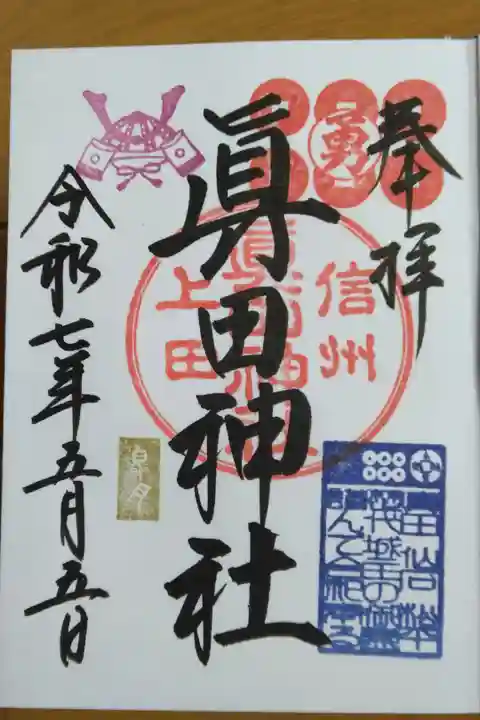 奉拝
勇
信州
眞田神社
上田
眞田神社
令和七年五月五日